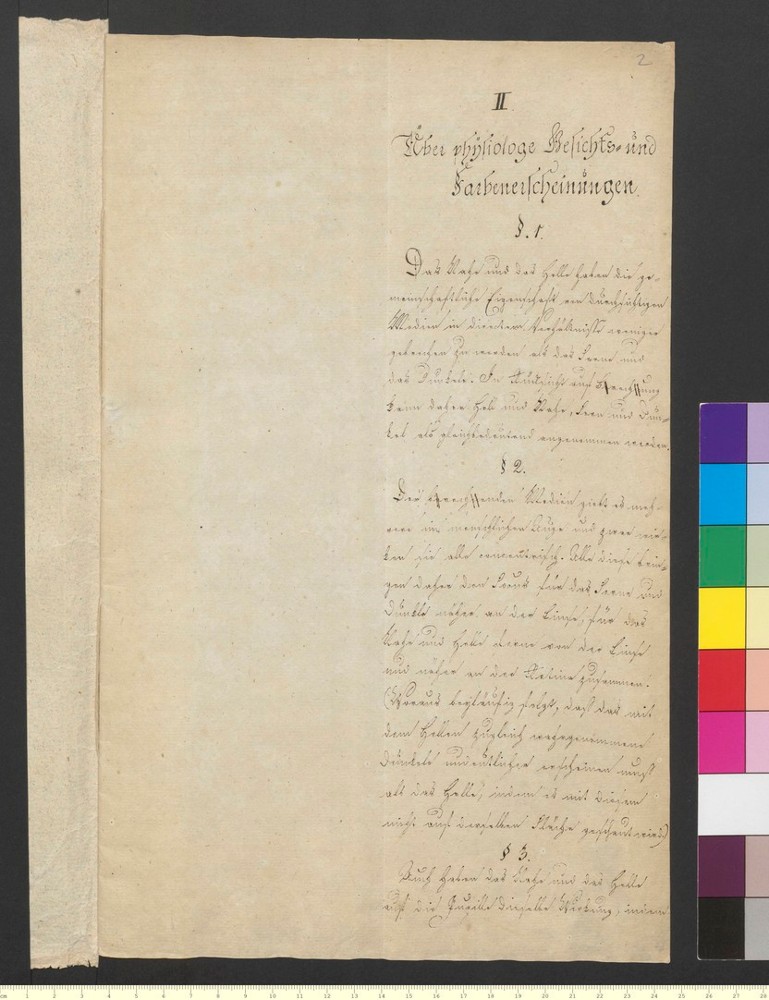 2
II
Über physiologe Gesichts- und
Farbenerscheinungen.
§. 1.
Das Nahe und das Helle haben die ge-
meinschaftliche Eigenschaft von durchsichtigen
Medien in directem Verhältnisse weniger
gebrochen zu werden als das Ferne und
das Dunkele. In Rücksicht auf Brechung
kann daher Hell und Nahe, Fern und Dun-
kel als gleichbedeutend angenommen werden.
§ 2.
Der brechenden Medien giebt es meh-
rere im menschlichen Auge und zwar wir-
ken sie alle concentrisch. Alle diese brin-
gen daher den Focus für das Ferne und
Dunkle näher an der Linse, für das
Nahe und Helle ferne von der Linse
und näher an der Retina zusammen.
(Woraus beyläufig folgt, daß das mit
dem Hellen zugleich wahrgenommene
Dunkele undeutlicher erscheinen muß
als das Helle, indem es mit diesem
nicht auf derselben Fläche geschaut wird)
§ 3.
Auch haben das Nahe und das Helle
auf die Pupille dieselbe Wirkung, indem